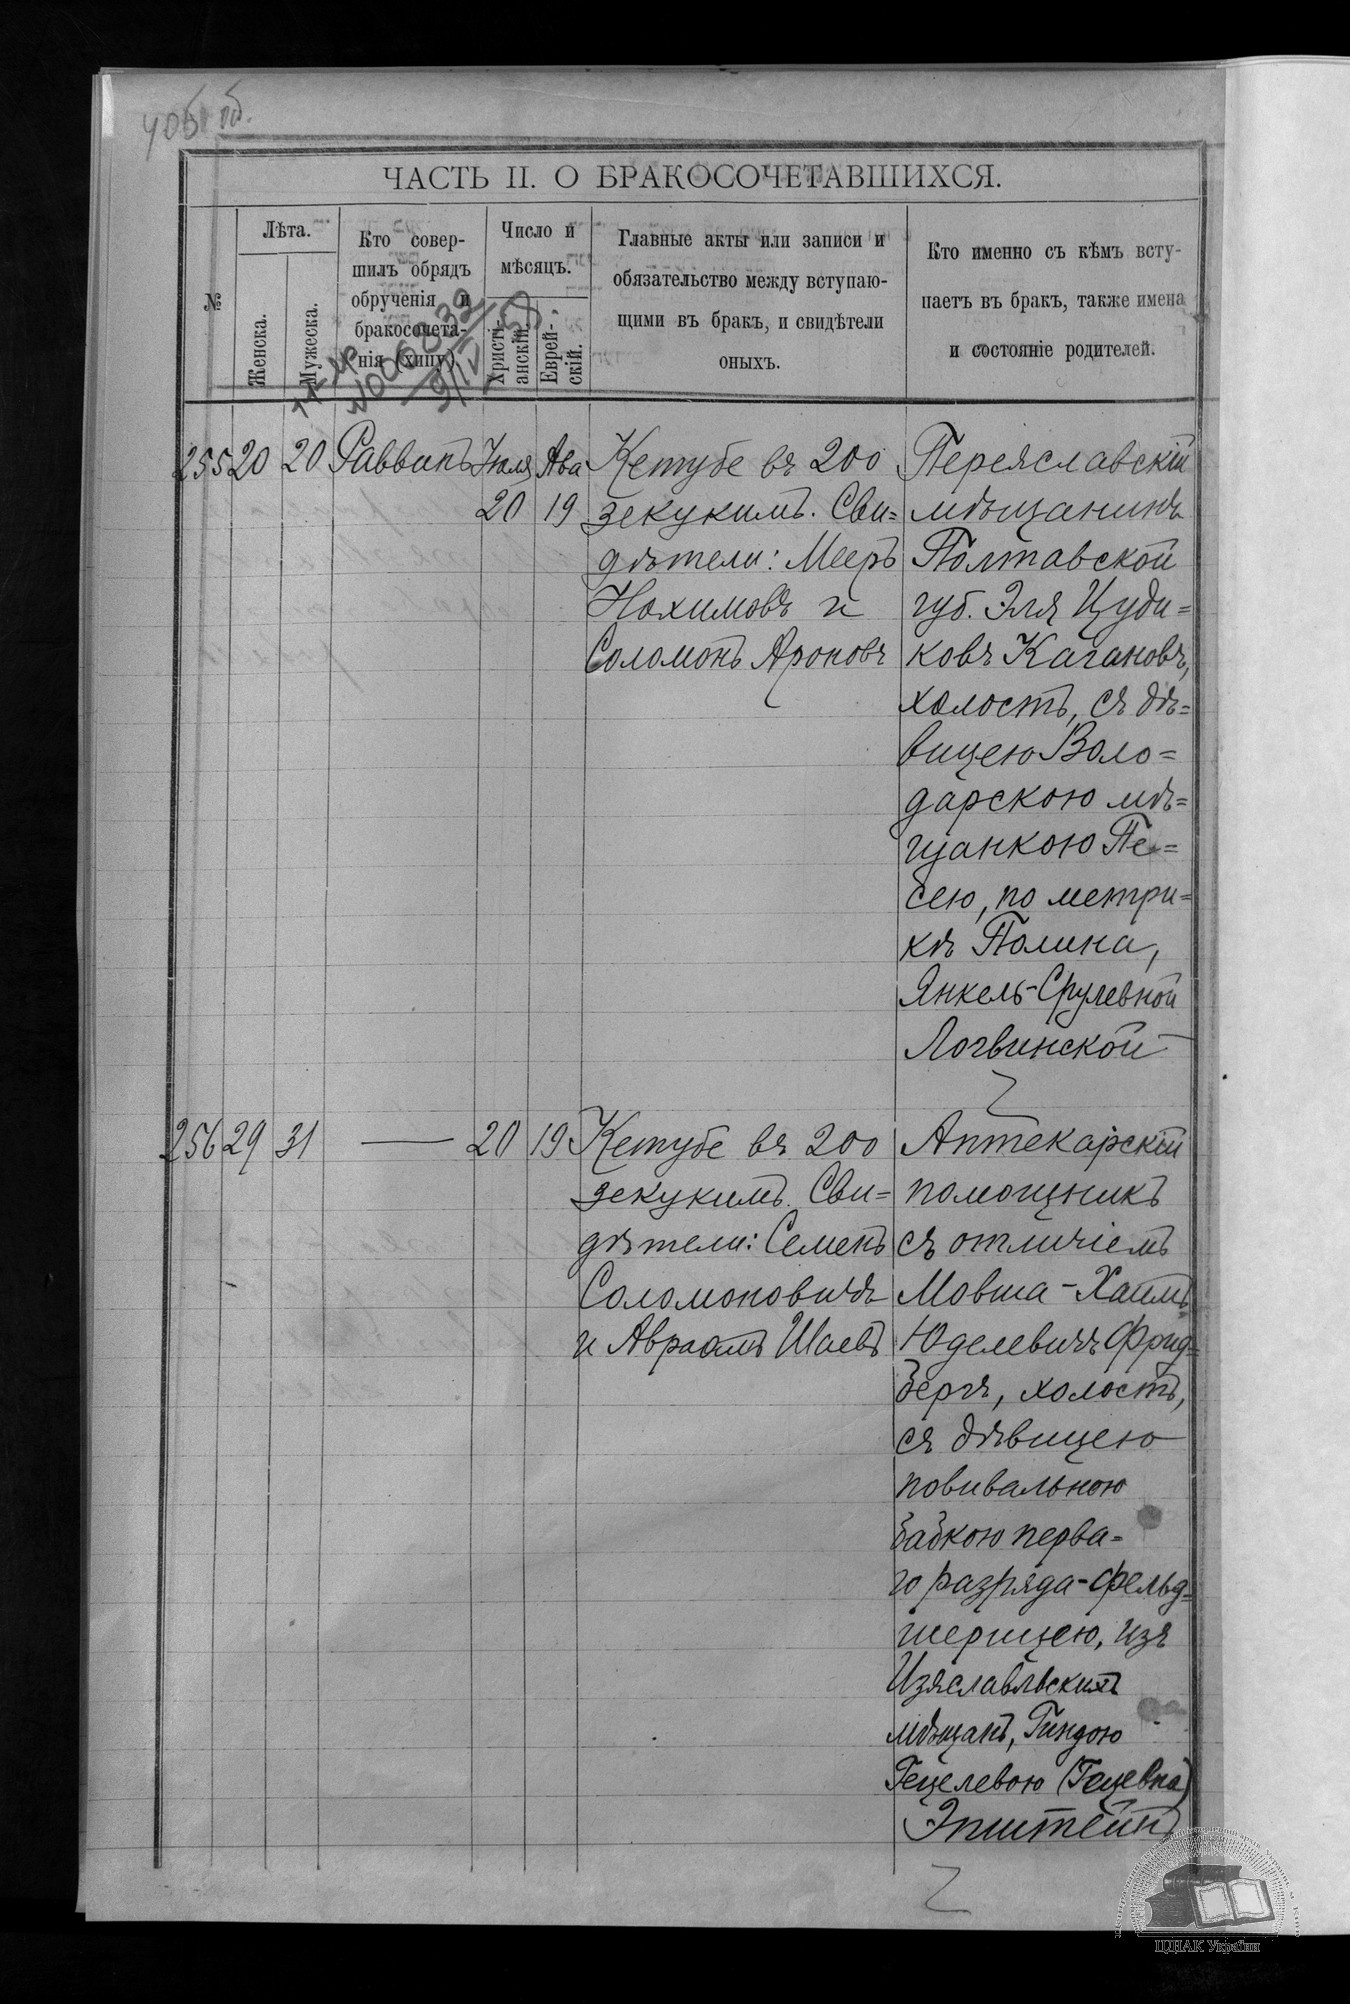 405 об.
ЧАСТЬ II. О БРАКОСОЧЕТАВШИХСЯ.
№
Лѣта.
Женска.
Мужеска.
Кто совер-
шилъ обрядъ
обрученія и
бракосочета-
нія (хупу).
Число и
мѣсяцъ.
Христі-
анскій.
Еврей-
скій.
Главные акты или записи и
обязательство между вступаю-
щими въ бракъ, и свидѣтели
оныхъ.
Кто именно съ кѣмъ всту-
паетъ въ бракъ, также имена
и состояніе родителей.
255 20 20 Раввинъ Іюля Ава
20 19
Кетубе въ 200
зекукимъ. Сви=
дѣтели: Мееръ
Нохимовъ и
Соломонъ Ароновъ
Переяславскій
мѣщанинъ
Полтавской
губ. Эля Цуди=
ковъ Кагановъ,
холостъ, съ дѣ=
вицею Воло=
дарскою мѣ=
щанкою Пе=
сею, по метри=
кѣ Полина,
Янкель-Срулевной
Логвинской
256 29 31 — 20 19
Кетубе въ 200
зекукимъ. Сви=
дѣтели: Семенъ
Соломоновичъ
и Авраамъ Шаевъ
Аптекарскій
помощникъ
съ отличіемъ
Мовша-Хаимъ
Юделевичъ Фрид=
бергъ, холостъ,
съ дѣвицею
повивальною
бабкою перва=
го разряда-фельд=
шерицею, изъ
Изяславльскихъ
мѣщанъ, Гиндою
Гецелевою (Гецевна)
Эпштейнъ
ЦДІАК України